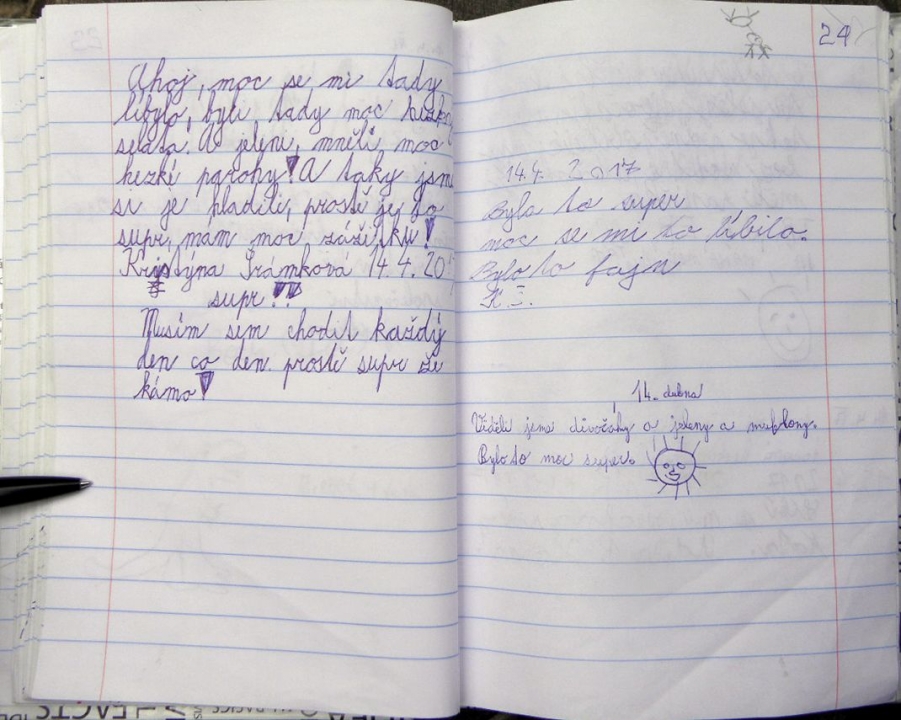 Ahoj, moc se mi tady
líbylo, byli tady moc hezka
selata. A jeleni, mněli, moc
hezké parohy! A taky jsme
si je hladili, prostě je to
supr, mam moc, zážitku!
Kristýna Šrámková 14.4.20
supr!!
Musím sem chodit každý
den co den. prostě supr že
kámo!
24
14.4. 2017
Bylo to super
moc se mi to líbilo.
Bylo to fajn
K.Š.
14. dubna
Viděli jsme divočáky a jeleny a muflony.
Bylo to moc super.